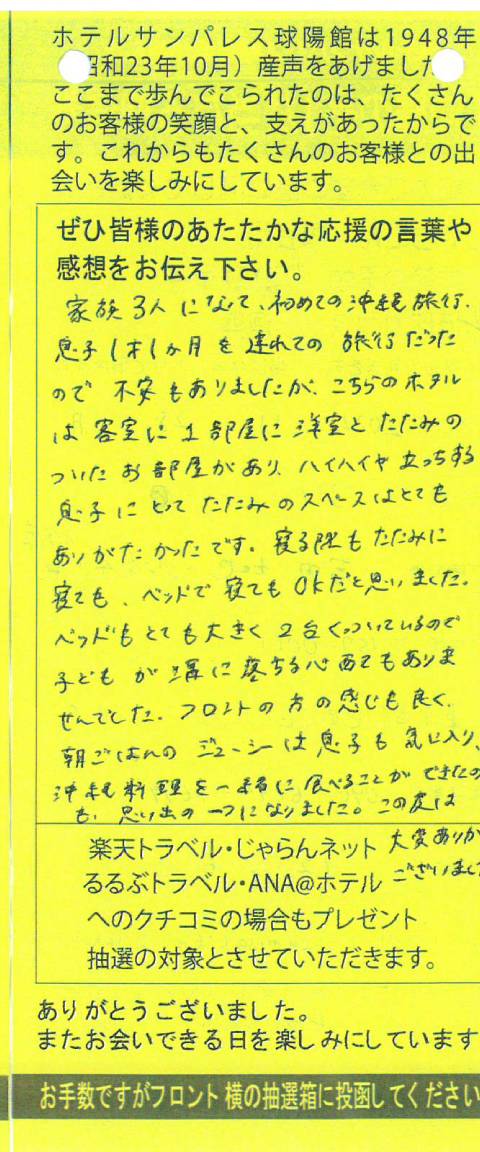 ホテルサンパレス球陽館は1948年
昭和23年10月）産声をあげました
ここまで歩んでこられたのは、たくさん
のお客様の笑顔と、支えがあったからで
す。これからもたくさんのお客様との出
会いを楽しみにしています。
ぜひ皆様のあたたかな応援の言葉や
感想をお伝え下さい。
家族3人になって、初めての沖縄旅行。
息子1才1か月を連れての旅行だった
ので不安もありましたが、こちらのホテル
は客室に1部屋に洋室とたたみの
ついたお部屋があり、ハイハイや立っちする
息子にとってたたみのスペースはとても
ありがたかったです。寝る際もたたみに
寝ても、ベッドで寝てもOKだと思いました。
ベッドもとても大きく2台くっついているので
子どもが溝に落ちる心配もありま
せんでした。フロントの方の感じも良く、
朝ごはんのジューシーは息子も気に入り、
沖縄料理を一緒に食べることができたの
も、思い出の一つになりました。この度は
大変ありが
ございまし
楽天トラベル・じゃらんネット
るるぶトラベル・ANA@ホテル
へのクチコミの場合もプレゼント
抽選の対象とさせていただきます。
ありがとうございました。
またお会いできる日を楽しみにしています
お手数ですがフロント横の抽選箱に投函してください